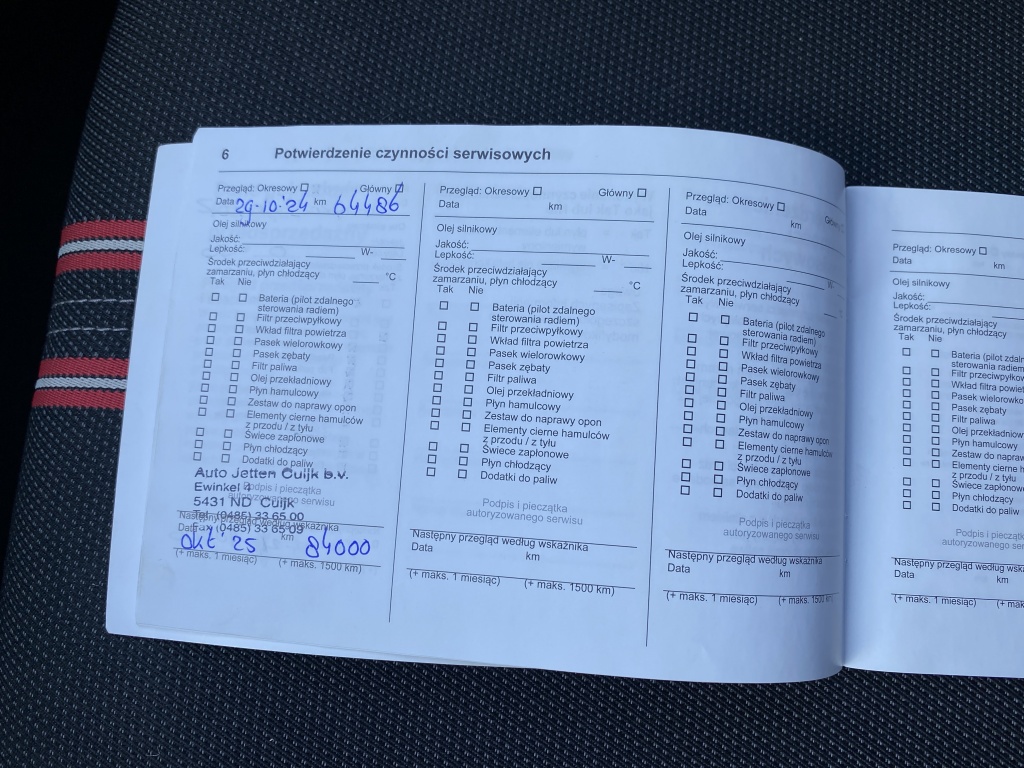 6 Potwierdzenie czynności serwisowych
Przegląd: Okresowy Główny
Data 29-10-'24 km 64486
Olej silnikowy
Jakość:
Lepkość: W-
Środek przeciwdziałający
zamarzaniu, płyn chłodzący °C
Tak Nie
Bateria (pilot zdalnego
sterowania radiem)
Filtr przeciwpyłkowy
Wkład filtra powietrza
Pasek wielorowkowy
Pasek zębaty
Filtr paliwa
Olej przekładniowy
Płyn hamulcowy
Zestaw do naprawy opon
Elementy cierne hamulców
z przodu / z tyłu
Świece zapłonowe
Płyn chłodzący
Dodatki do paliw
Auto Jetten Cuijk b.v.
Ewinkel
Podpis i pieczątka
5431 ND Cuijk
autoryzowanego serwisu
Tel. (0485) 33 65 00
Następny przegląd według wskaźnika
Fax (0485) 33 65 09
Data km
okt '25 84000
(+ maks. 1 miesiąc) (+ maks. 1500 km)
Przegląd: Okresowy Główny
Data km
Olej silnikowy
Jakość:
Lepkość: W-
Środek przeciwdziałający
zamarzaniu, płyn chłodzący °C
Tak Nie
Bateria (pilot zdalnego
sterowania radiem)
Filtr przeciwpyłkowy
Wkład filtra powietrza
Pasek wielorowkowy
Pasek zębaty
Filtr paliwa
Olej przekładniowy
Płyn hamulcowy
Zestaw do naprawy opon
Elementy cierne hamulców
z przodu / z tyłu
Świece zapłonowe
Płyn chłodzący
Dodatki do paliw
Podpis i pieczątka
autoryzowanego serwisu
Następny przegląd według wskaźnika
Data km
(+ maks. 1 miesiąc) (+ maks. 1500 km)
Przegląd: Okresowy
Data km
Olej silnikowy
Jakość:
Lepkość:
Środek przeciwdziałający
zamarzaniu, płyn chłodzący
Tak Nie
Bateria (pilot zdalnego
sterowania radiem)
Filtr przeciwpyłkowy
Wkład filtra powietrza
Pasek wielorowkowy
Pasek zębaty
Filtr paliwa
Olej przekładniowy
Płyn hamulcowy
Zestaw do naprawy opon
Elementy cierne hamulców
z przodu / z tyłu
Świece zapłonowe
Płyn chłodzący
Dodatki do paliw
Podpis i pieczątka
autoryzowanego serwisu
Następny przegląd według wskaźnika
Data km
(+ maks. 1 miesiąc) (+ maks. 1500 km)
Przegląd: Okresowy
Data km
Olej silnikowy
Jakość:
Lepkość:
Środek przeciwdziałający
zamarzaniu, płyn chłodzący
Tak Nie
Bateria (pilot
sterowania radiem
Filtr przeciwpyłkow
Wkład filtra powiet
Pasek wielorowko
Pasek zębaty
Filtr paliwa
Olej przekładniow
Płyn hamulcowy
Zestaw do napra
Elementy cierne h
z przodu / z tyłu
Świece zapłonowe
Płyn chłodzący
Dodatki do paliw
Podpis i
autoryzowanego
Następny przegląd według
Data km
(+ maks. 1 miesiąc) (+ ma